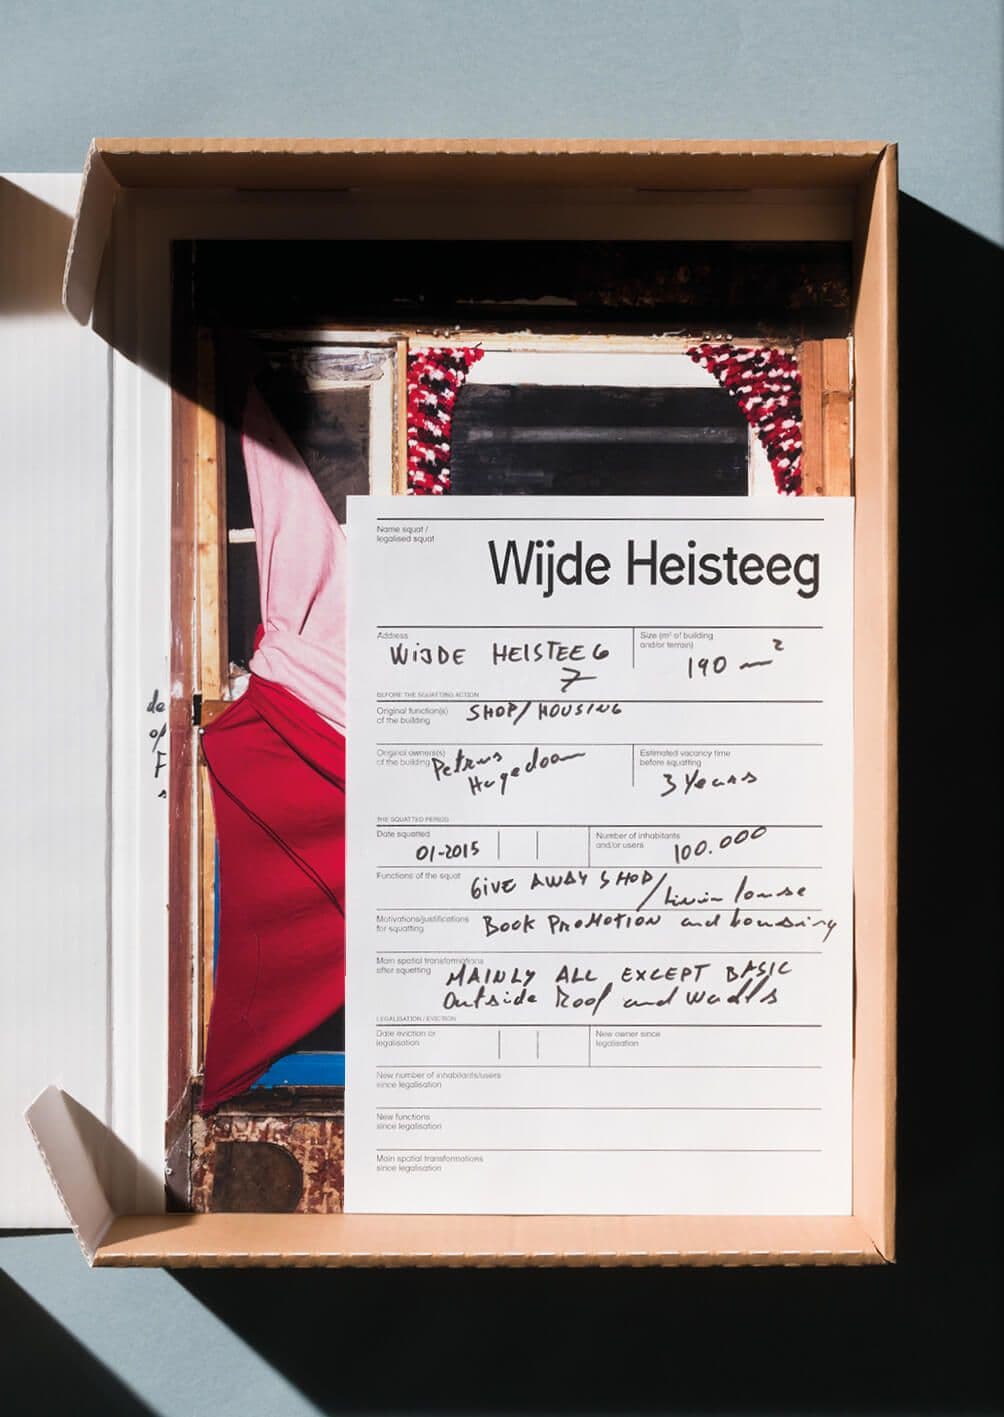 Name squat /
legalised squat
Wijde Heisteeg
Address
WIJDE HEISTEEG
7
Size (m² of building
and/or terrain)
190 m²
BEFORE THE SQUATTING ACTION
Original function(s)
of the building
SHOP/HOUSING
Original owners(s)
of the building
Petrus
Hagedoorn
Estimated vacancy time
before squatting
3 Years
THE SQUATTED PERIOD
Date squatted
01-2015
Number of inhabitants
and/or users
100.000
Functions of the squat
GIVE AWAY SHOP/
Motivations/justifications
for squatting
BOOK PROMOTION and housing
Main spatial transformations
after squatting
MAINLY ALL EXCEPT BASIC
Outside Roof and walls
LEGALISATION / EVICTION
Date eviction or
legalisation
New owner since
legalisation
New number of inhabitants/users
since legalisation
New functions
since legalisation
Main spatial transformations
since legalisation
de
op
F
s